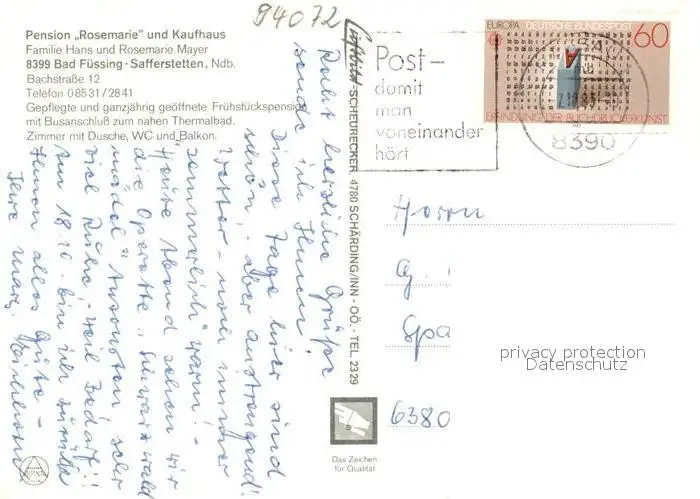 94072
Pension „Rosemarie” und Kaufhaus
Familie Hans und Rosemarie Mayer
8399 Bad Füssing-Safferstetten, Ndb.
Bachstraße 12
Telefon 0 85 31 / 28 41
Gepflegte und ganzjährig geöffnete Frühstückspension
mit Busanschluß zum nahen Thermalbad.
Zimmer mit Dusche, WC und Balkon.
Recht herzliche Grüße
sende ich Ihnen!
Diese Tage hier sind
schön - aber anstrengend!
Wetter - noch immer
sommerlich warm! -
Heute Abend sehen wir
die Operette „Schwarzwald
mädel" Ansonsten sehr
viel Ruhe - weil Bedarf!!
Am 18.10. bin ich zurück
Ihnen alles Gute -
Ihre
Luftbild - SCHEURECKER, 4780 SCHÄRDING/INN - OÖ. - TEL. 2329
Das Zeichen
für Qualität
Post-
damit
man
voneinander
hört
EUROPA DEUTSCHE BUNDESPOST
60
ERFINDUNG DER BUCHDRUCKERKUNST
8390
Herrn
G.
Spa
6380
privacy protection
Datenschutz